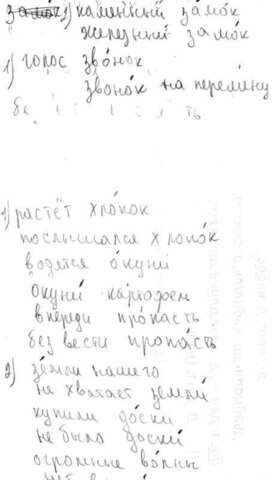 1) каменный за́мок
железный замо́к
1) голос зво́нок
звоно́к на перемену
1) растёт хло́пок
послышался хлопо́к
водятся о́куни
окуни́ картофель
впереди про́пасть
без вести пропа́сть
2) зе́мли нашего
не хватает земли́
купили до́ски
не было доски́
огромные во́лны